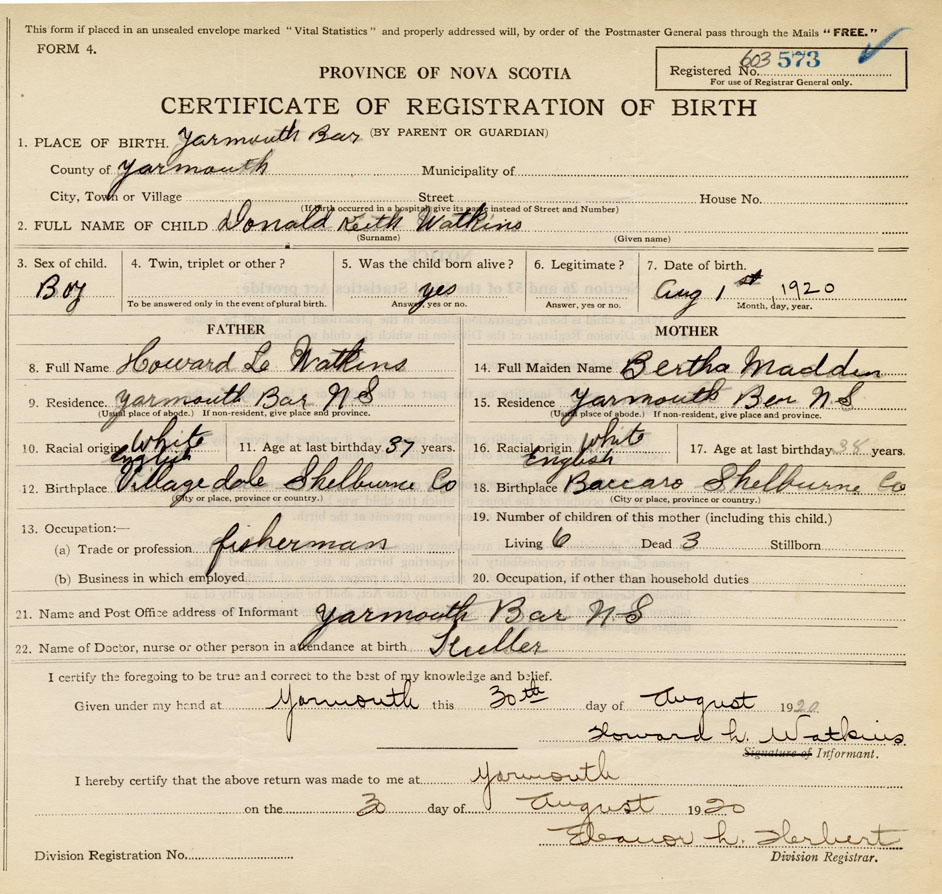 This form if placed in an unsealed envelope marked "Vital Statistics" and properly addressed will, by order of the Postmaster General pass through the Mails "FREE."
FORM 4.
Registered No. 603 573
For use of Registrar General only.
PROVINCE OF NOVA SCOTIA
CERTIFICATE OF REGISTRATION OF BIRTH
(BY PARENT OR GUARDIAN)
1. PLACE OF BIRTH. Yarmouth Bar
County of Yarmouth Municipality of
City, Town or Village Street House No.
(If birth occurred in a hospital give its name instead of Street and Number)
2. FULL NAME OF CHILD Donald Keith Watkins
(Surname) (Given name)
3. Sex of child. 4. Twin, triplet or other? 5. Was the child born alive? 6. Legitimate? 7. Date of birth.
Boy yes Aug 1st, 1920
To be answered only in the event of plural birth. Answer, yes or no. Answer, yes or no. Month, day, year.
FATHER MOTHER
8. Full Name Howard L Watkins 14. Full Maiden Name Bertha Madden
9. Residence. Yarmouth Bar N S 15. Residence Yarmouth Bar N S
(Usual place of abode.) If non-resident, give place and province. (Usual place of abode.) If non-resident, give place and province.
10. Racial origin White English 11. Age at last birthday 37 years. 16. Racial origin White English 17. Age at last birthday 38 years.
12. Birthplace Villagedale Shelburne Co 18. Birthplace Baccaro Shelburne Co
(City or place, province or country.) (City or place, province or country.)
13. Occupation:— 19. Number of children of this mother (including this child.)
(a) Trade or profession fisherman Living 6 Dead 3 Stillborn
(b) Business in which employed 20. Occupation, if other than household duties
21. Name and Post Office address of Informant Yarmouth Bar N S
22. Name of Doctor, nurse or other person in attendance at birth
I certify the foregoing to be true and correct to the best of my knowledge and belief.
Given under my hand at Yarmouth this 30th day of August 1920
Howard L. Watkins
Signature of Informant.
I hereby certify that the above return was made to me at Yarmouth
on the 30 day of August 1920
Eleanor L. Herbert
Division Registration No. Division Registrar.